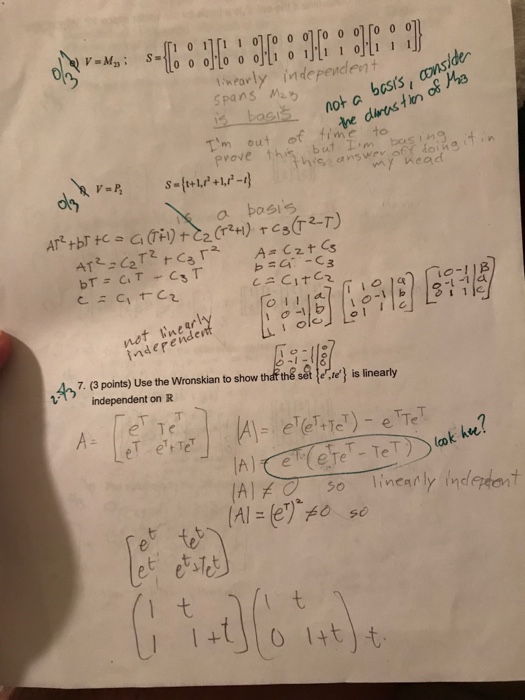 0/3 V = M₂₃ ; S = {[1 0 1; 0 0 0], [1 1 0; 0 0 0], [0 0 0; 1 0 1], [0 0 0; 1 1 0], [0 0 0; 1 1 1]}
linearly independent
spans M23
is basis
not a basis, consider
the dimension of M23
I'm out of time to
prove this, but I'm basing
this answer off doing it in
my head
0/3 V = P₂ S = {t+1, t²+1, t²-t}
is a basis
AT²+bT+C = C₁(T+1) + C₂(T²+1) + C₃(T²-T)
AT² = C₂T² + C₃T² A = C₂+C₃
bT = C₁T - C₃T b = C₁ - C₃
C = C₁ + C₂ C = C₁+C₂
[0 1 1 | a; 1 0 -1 | b; 1 1 0 | c]
not linearly
independent
7. (3 points) Use the Wronskian to show that the set {eᵗ, teᵗ} is linearly
independent on ℝ
A = [e^T Te^T; e^T e^T+Te^T] |A| = e^T(e^T+Te^T) - e^T Te^T
|A| = e^T(e^T Te^T - Te^T) look here?
|A| ≠ 0 so linearly independent
|A| = (e^T)² ≠ 0 so
[e^t te^t; e^t e^t+te^t]
(1 t; 1 1+t) (1 t; 0 1+t) - t.